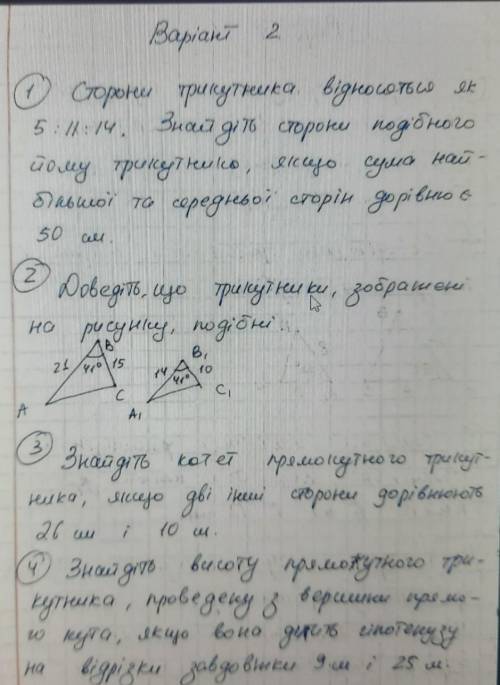 Варіант 2
1 Сторони трикутника відносяться як
5:11:14. Знайдіть сторони подібного
йому трикутника, якщо сума най-
більшої та середньої сторін дорівнює
50 см.
2 Доведіть, що трикутники, зображені
на рисунку, подібні.
B B₁
21 41° 15 14 41° 10
A C A₁ C₁
3 Знайдіть катет прямокутного трикут-
ника, якщо дві інші сторони дорівнюють
26 см і 10 см.
4 Знайдіть висоту прямокутного три-
кутника, проведену з вершини прямо-
го кута, якщо вона ділить гіпотенузу
на відрізки завдовжки 9 м і 25 м.